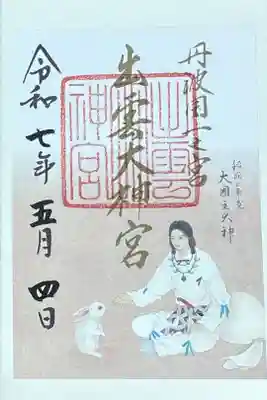 丹波國一之宮
出雲大神宮
出雲
神宮
大国主大神
令和七年五月四日